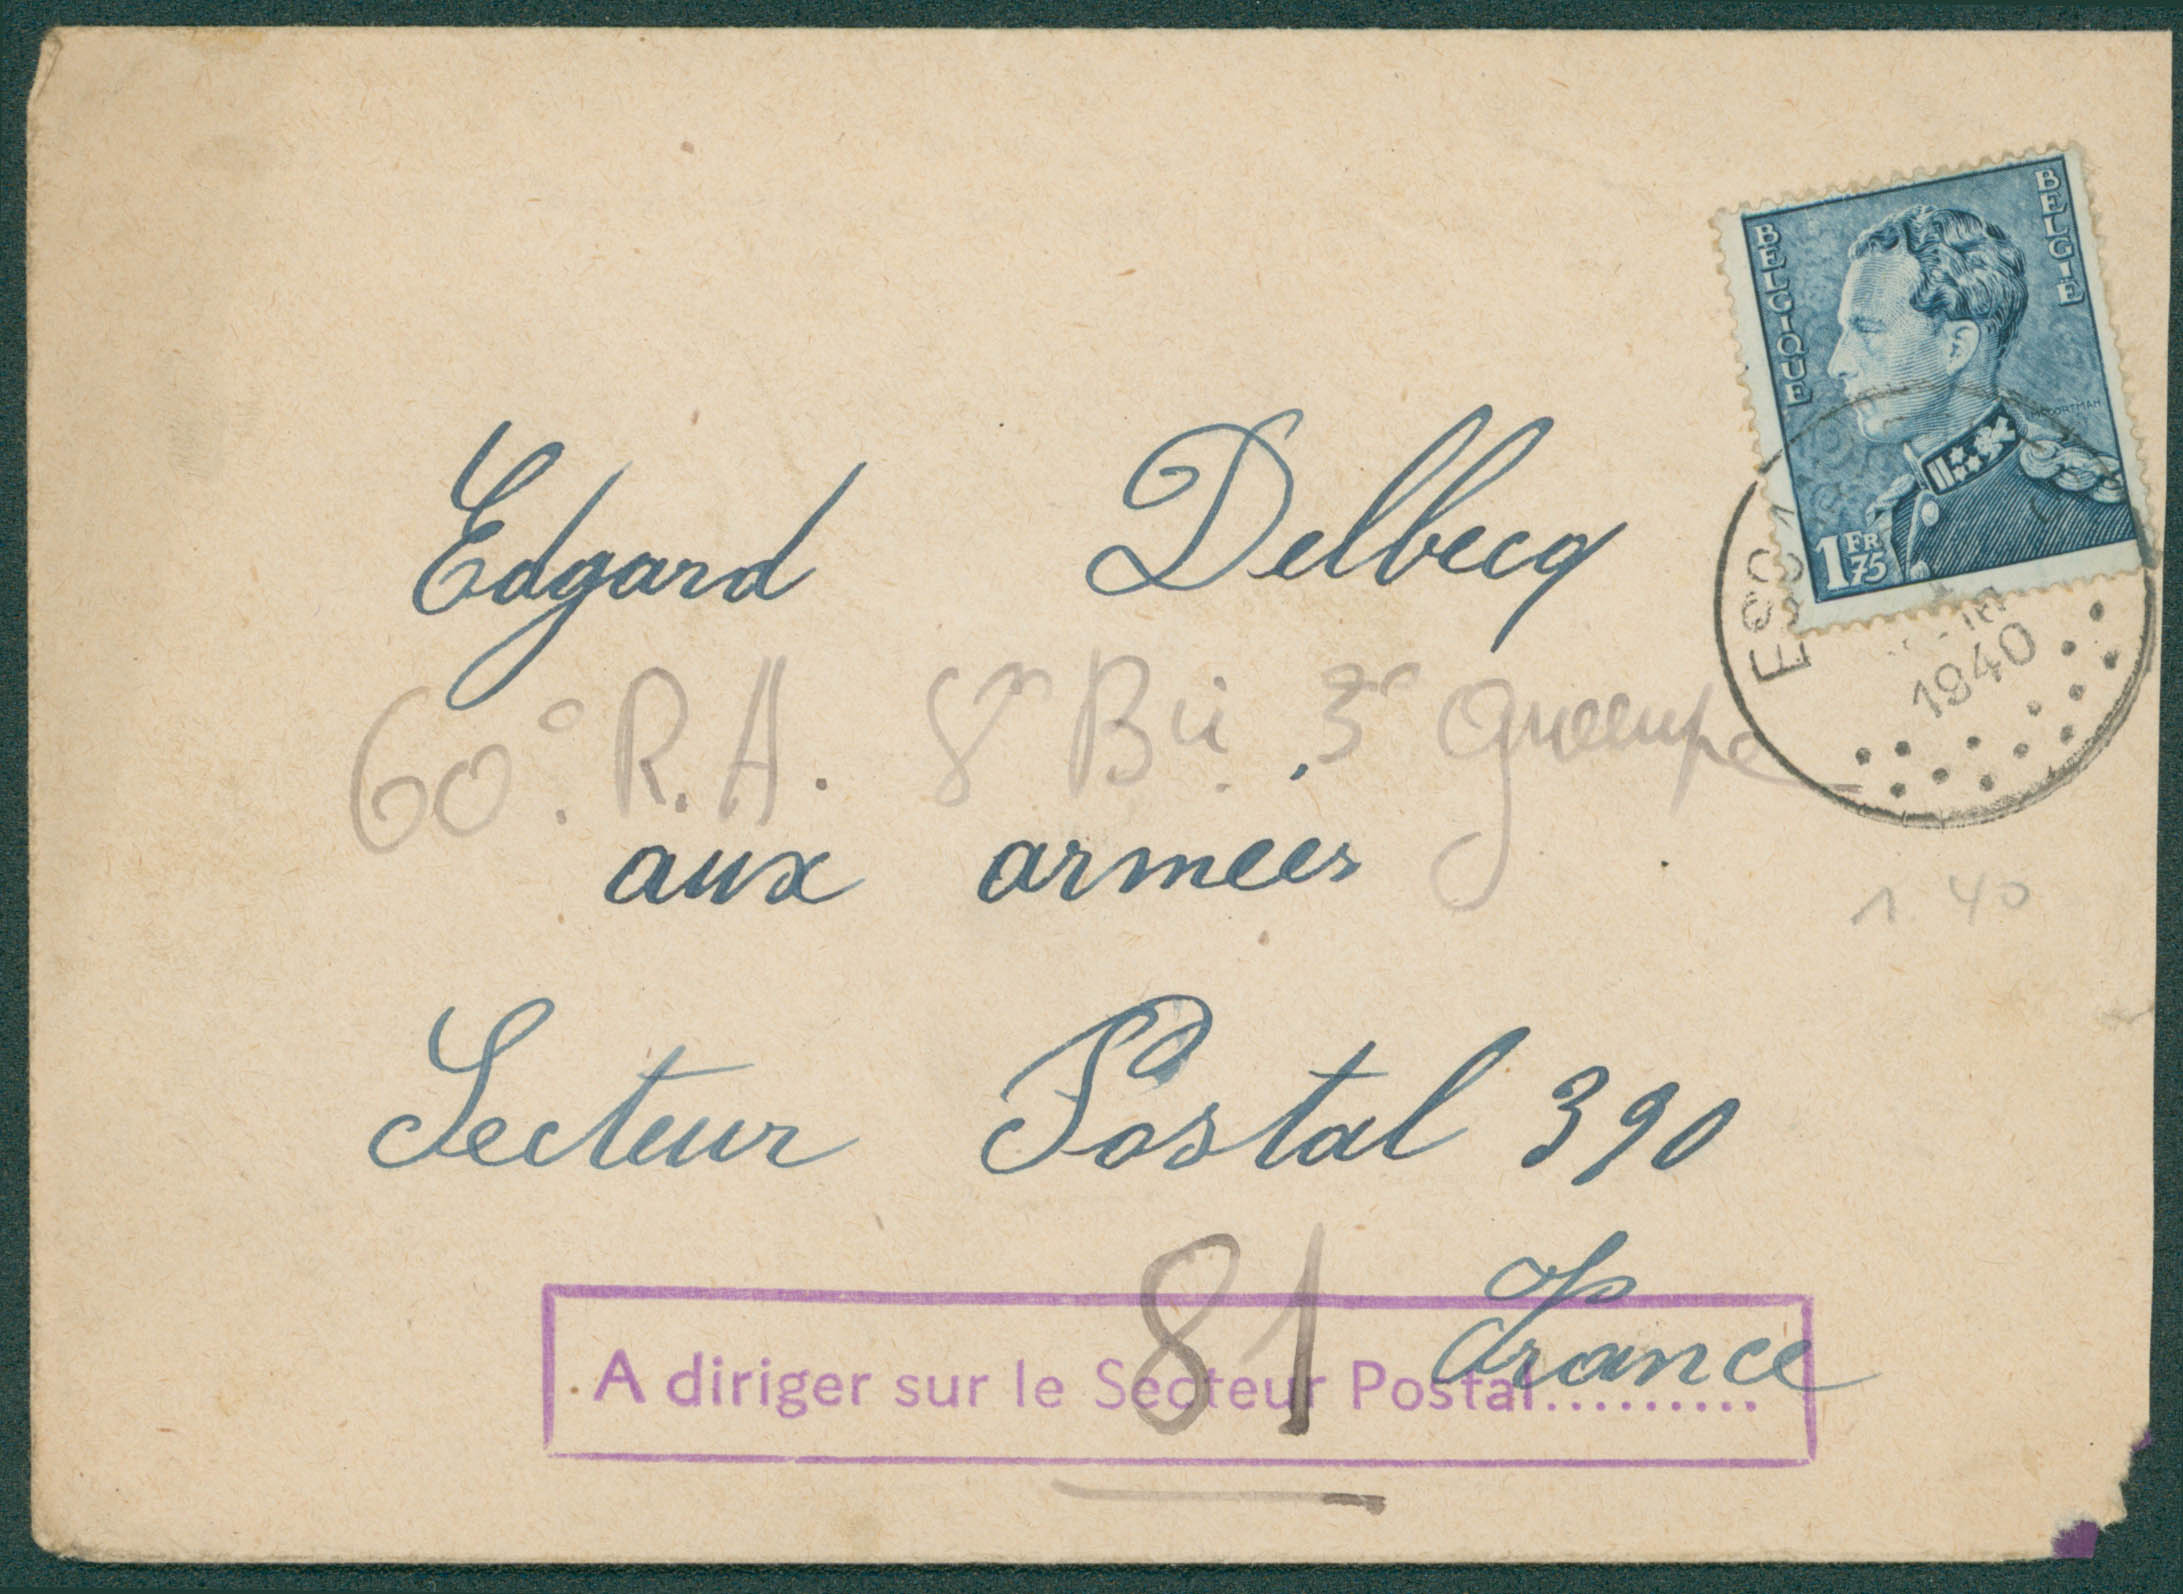 BELGIQUE
BELGIË
1 FR 75
1940
Edgard Delbecq
60e. R.A. 8e Bie 3e Groupe
aux armées
1.40
Secteur Postal 390
81
France
A diriger sur le Secteur Postal.........